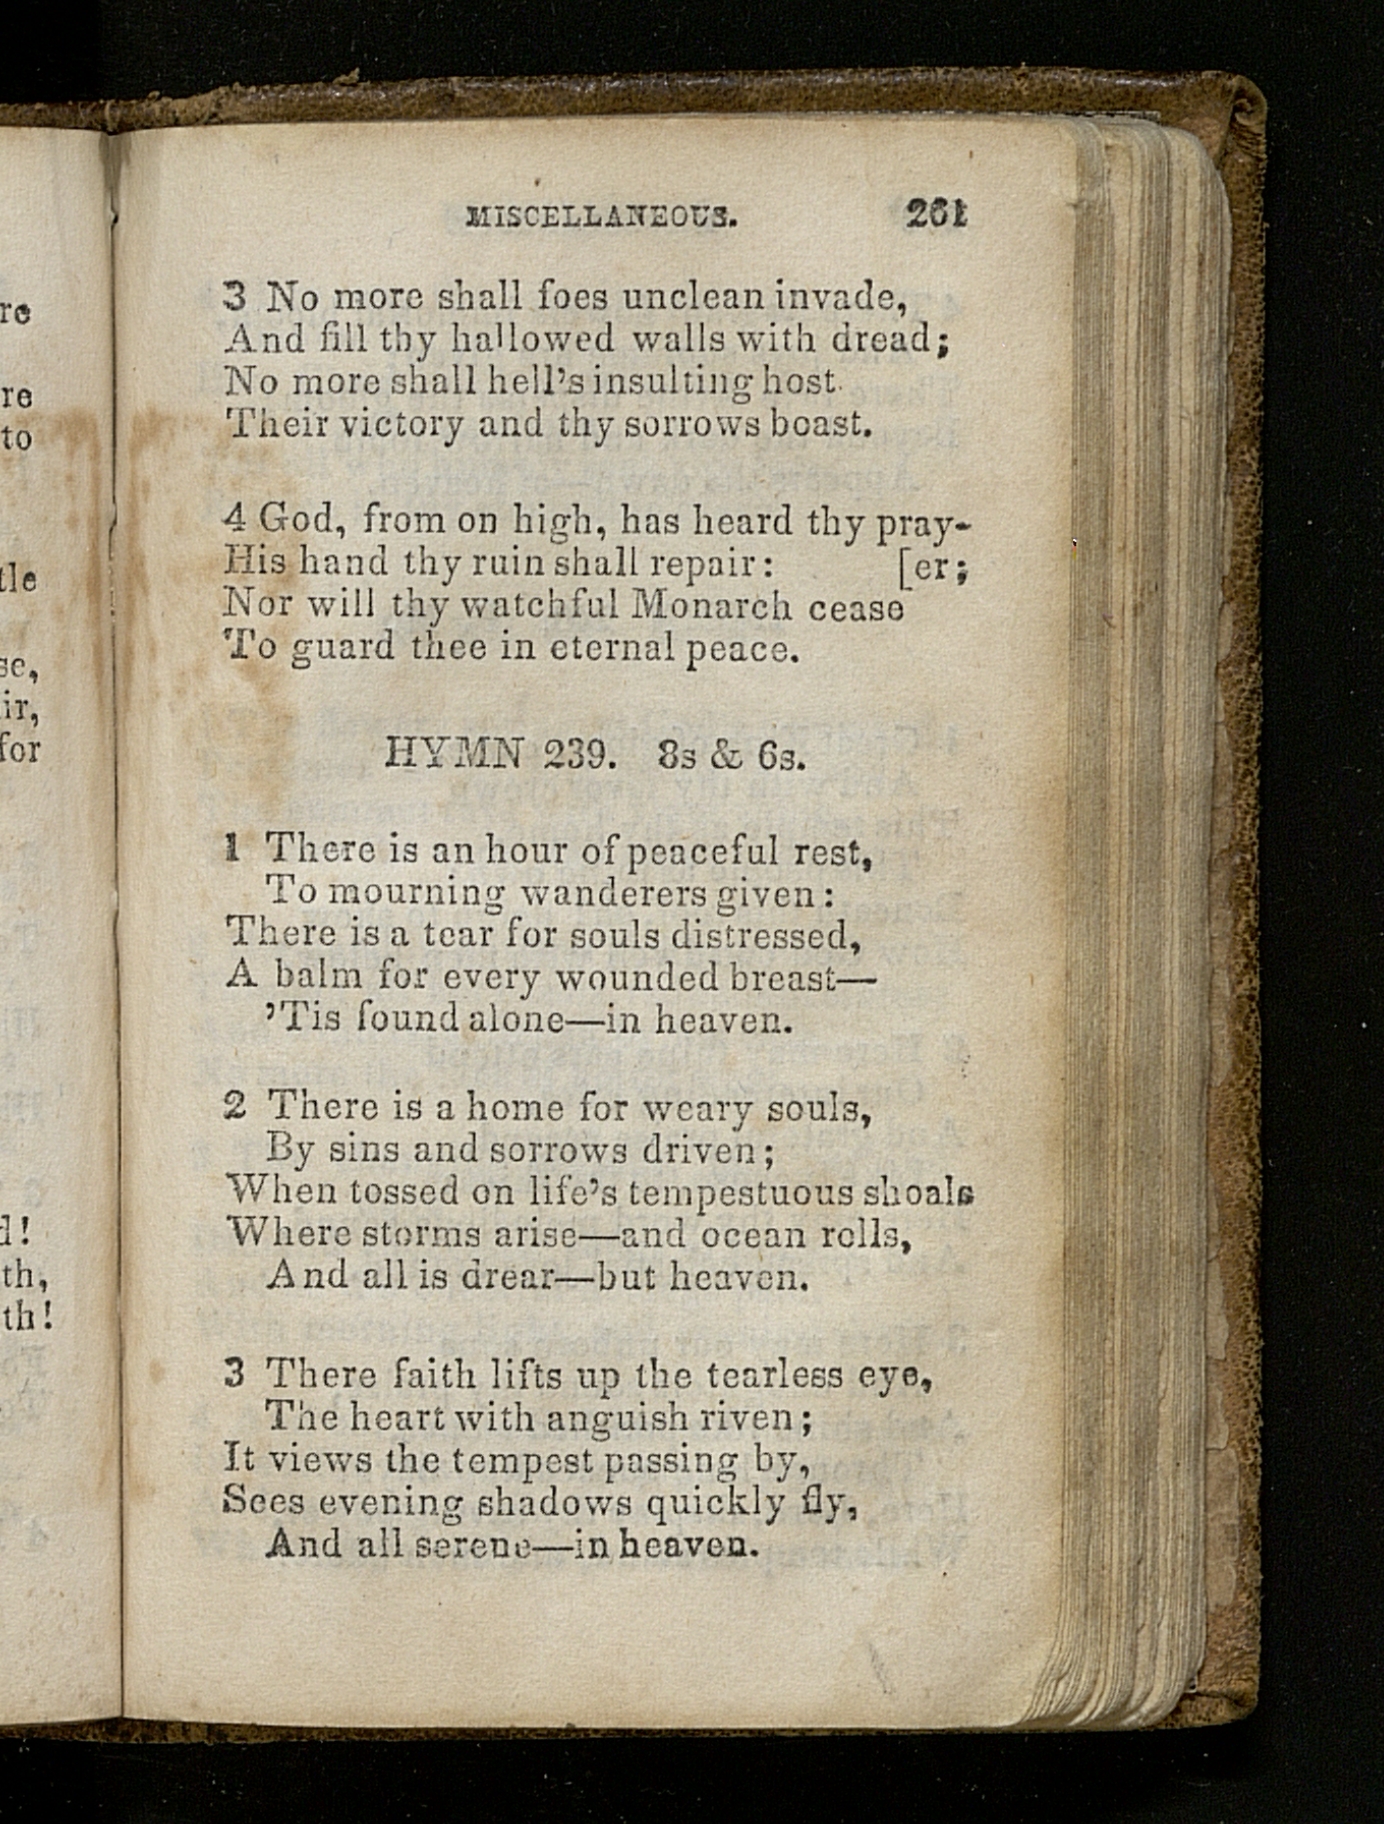 re
re
to
tle
se,
ir,
for
d!
th,
th!
MISCELLANEOUS. 261
3 No more shall foes unclean invade,
And fill thy hallowed walls with dread;
No more shall hell's insulting host
Their victory and thy sorrows boast.
4 God, from on high, has heard thy pray-
His hand thy ruin shall repair: [er;
Nor will thy watchful Monarch cease
To guard thee in eternal peace.
HYMN 239. 8s & 6s.
1 There is an hour of peaceful rest,
To mourning wanderers given:
There is a tear for souls distressed,
A balm for every wounded breast—
'Tis found alone—in heaven.
2 There is a home for weary souls,
By sins and sorrows driven;
When tossed on life's tempestuous shoals
Where storms arise—and ocean rolls,
And all is drear—but heaven.
3 There faith lifts up the tearless eye,
The heart with anguish riven;
It views the tempest passing by,
Sees evening shadows quickly fly,
And all serene—in heaven.